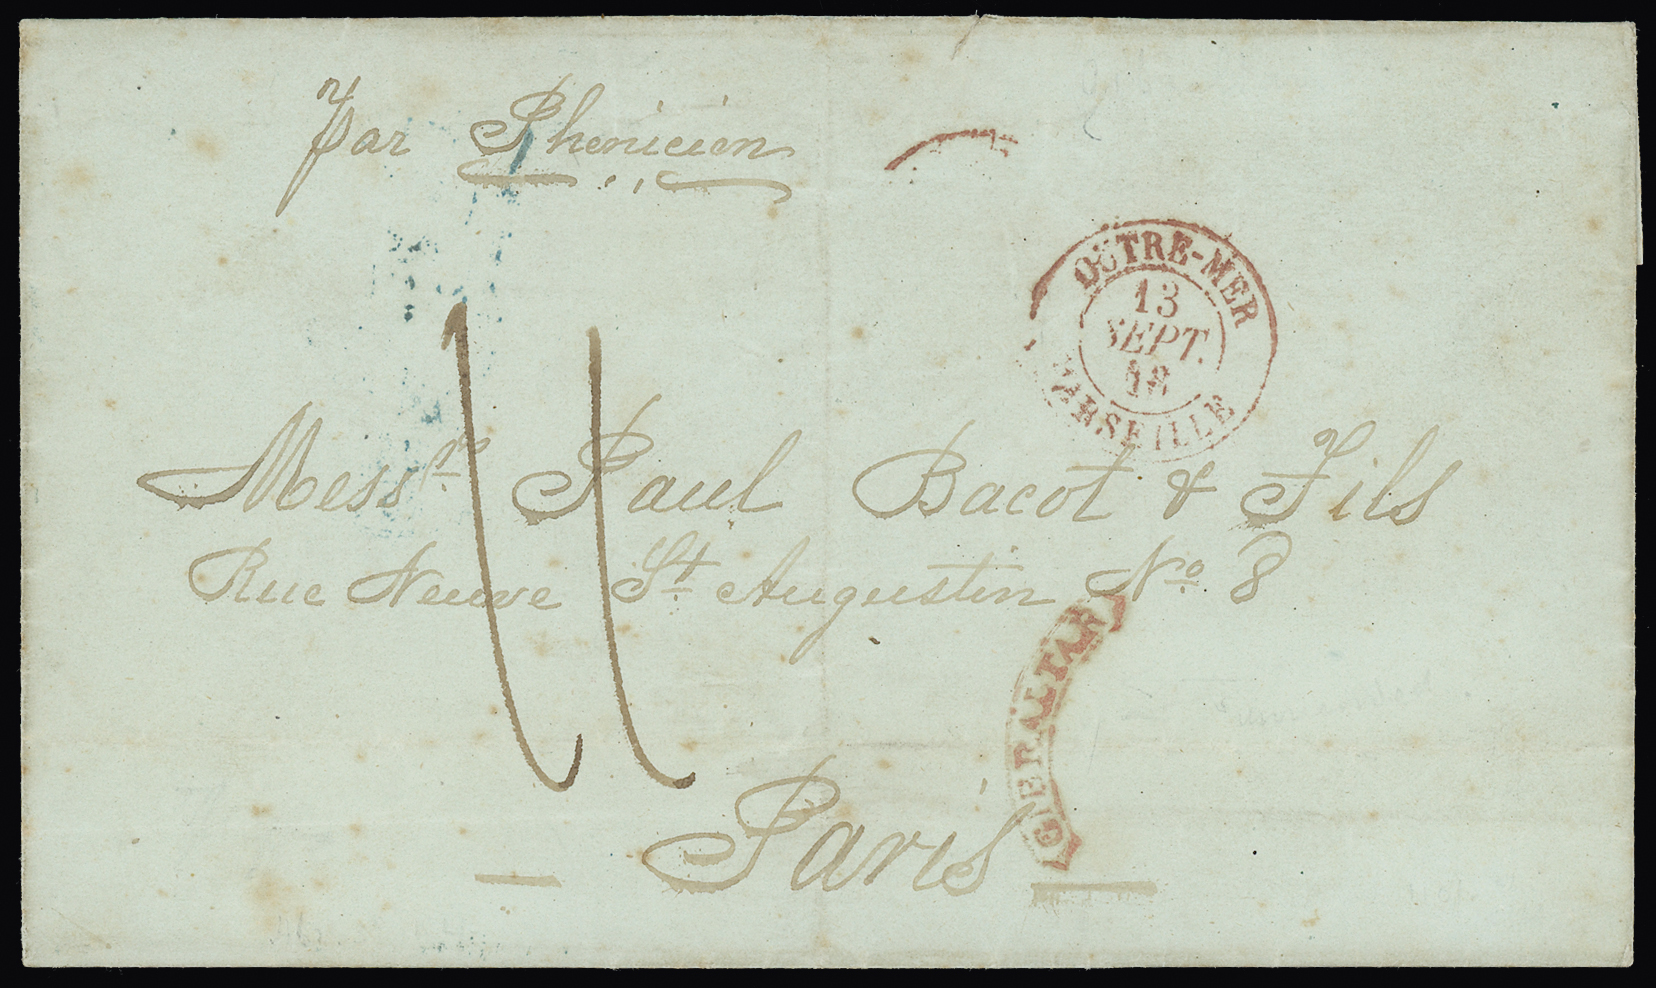 par Phenicien
OUTRE-MER
13
SEPT.
48
MARSEILLE
11
Mess.rs Paul Bacot & Fils
Rue Neuve St. Augustin No. 8
GIBRALTAR
Paris